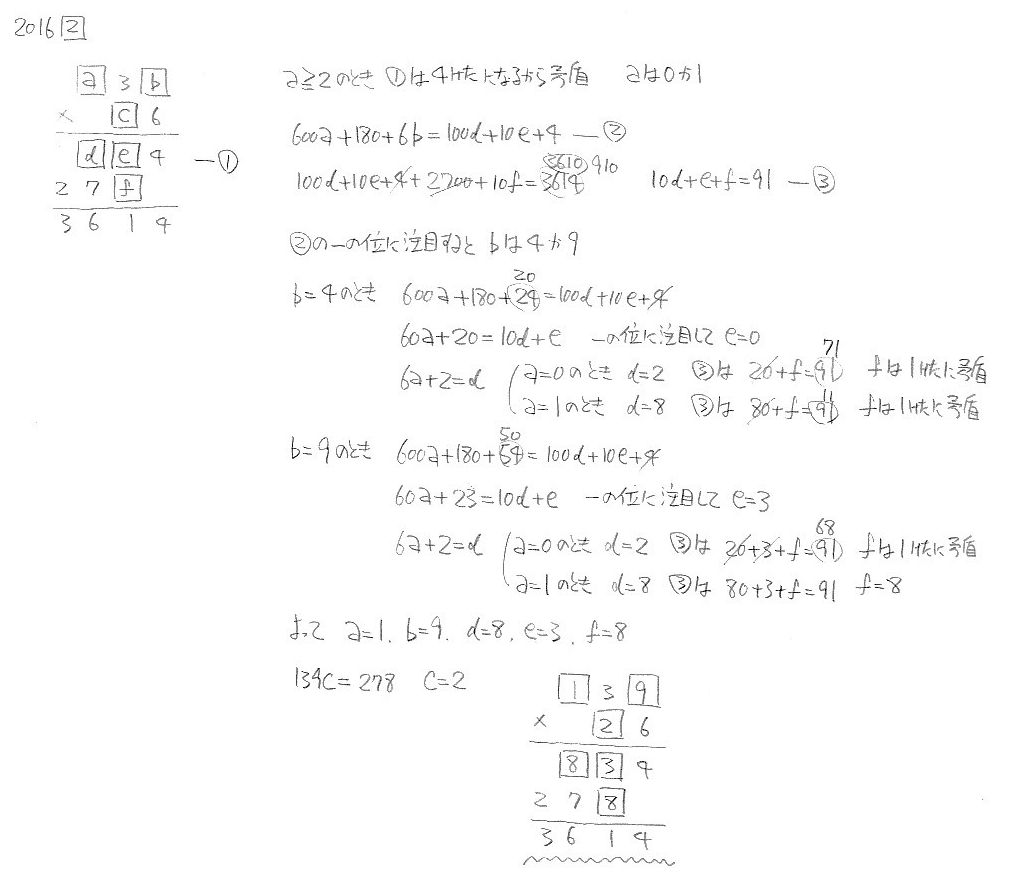 2016 2
a 3 b
× c 6
d e 4 —①
2 7 f
3 6 1 4
a≧2のとき ①は4けたになるから矛盾 aは0か1
600a+180+6b=100d+10e+4 —②
3610 910
100d+10e+4+2700+10f=3614 10d+e+f=91 —③
②の一の位に注目すると bは4か9
20
b=4のとき 600a+180+24=100d+10e+4
60a+20=10d+e 一の位に注目して e=0
71
6a+2=d a=0のとき d=2 ③は 20+f=91 fは1けたに矛盾
11
a=1のとき d=8 ③は 80+f=91 fは1けたに矛盾
50
b=9のとき 600a+180+54=100d+10e+4
60a+23=10d+e 一の位に注目して e=3
68
6a+2=d a=0のとき d=2 ③は 20+3+f=91 fは1けたに矛盾
a=1のとき d=8 ③は 80+3+f=91 f=8
よって a=1. b=9. d=8. e=3. f=8
139c=278 c=2
1 3 9
× 2 6
8 3 4
2 7 8
3 6 1 4